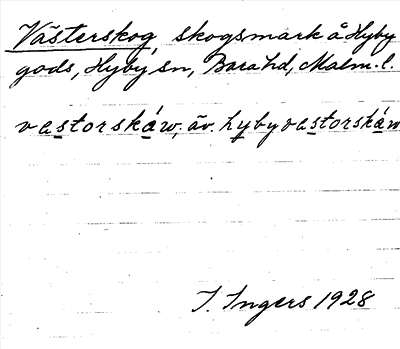 Västerskog, skogsmark å Hyby
gods, Hyby sn, Bara hd, Malm. l.
vastorskáw, äv. hybyvastorskáw
I. Ingers 1928